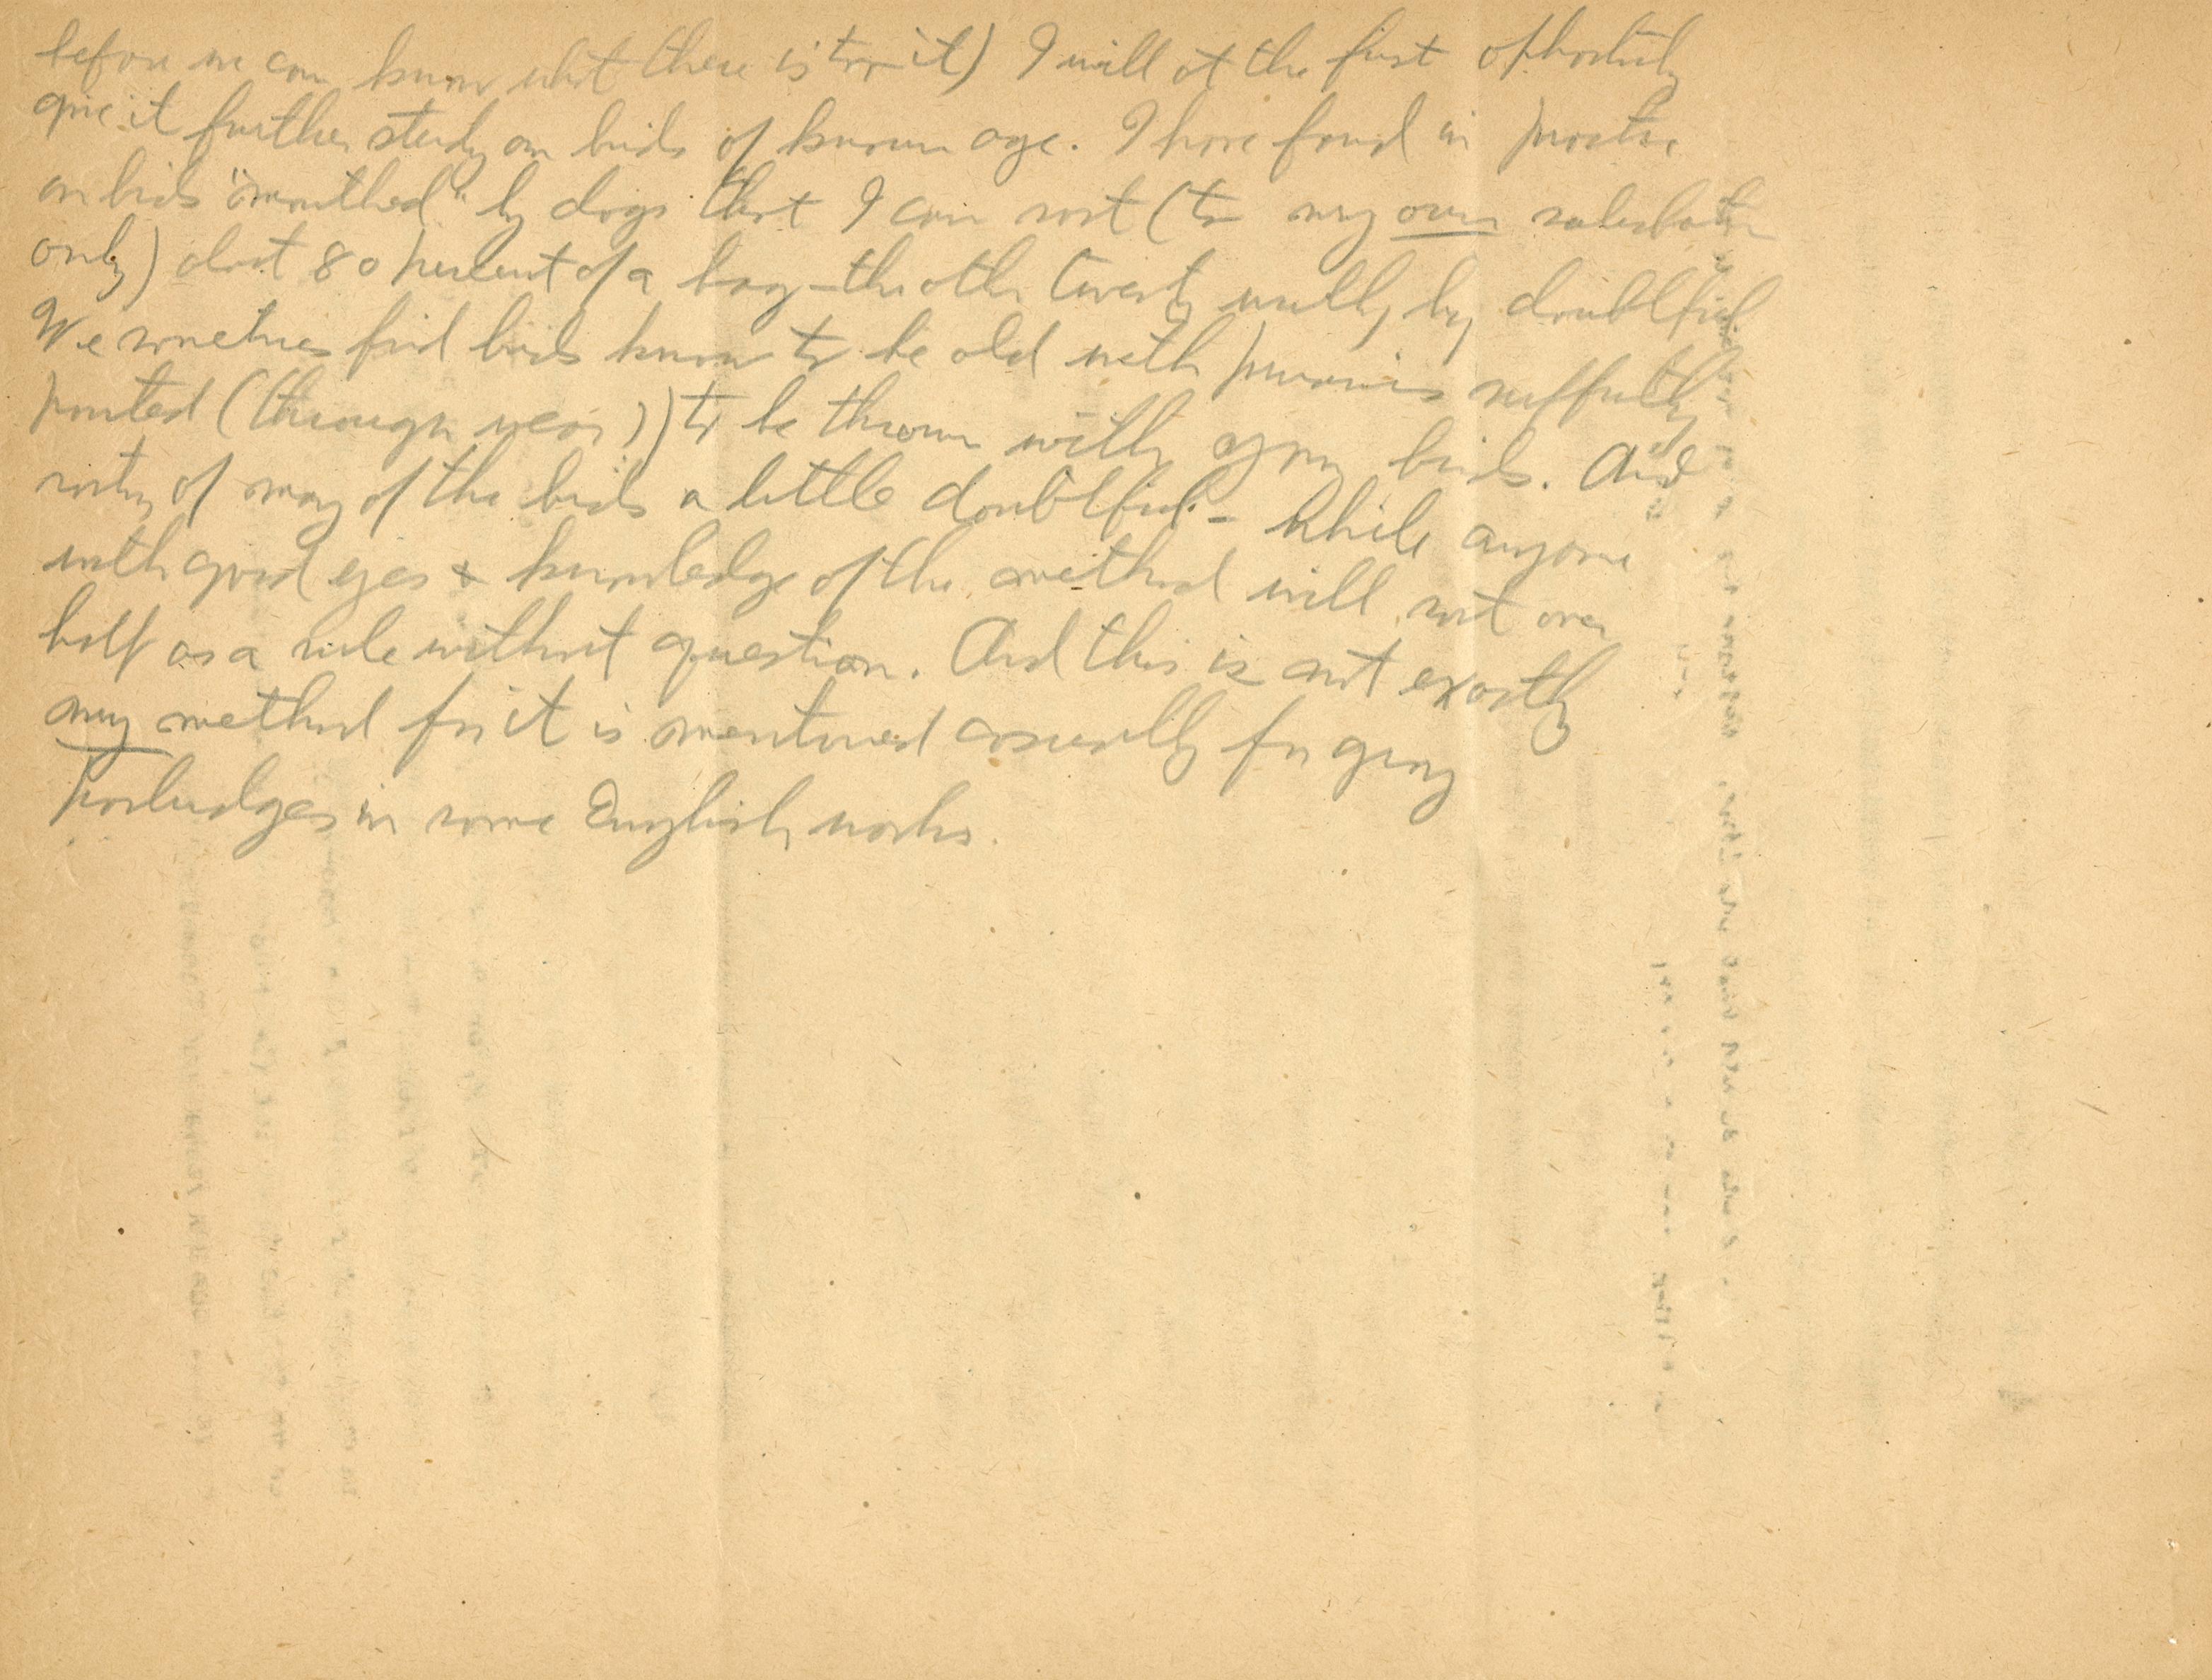 before we can know what there is to it) I will at the first opportunity
give it further study on birds of known age. I have found in practice
on birds "mouthed" by dogs that I can sort (to my own satisfaction
only) about 80 percent of a bag - the other twenty will be doubtful
We sometimes find birds known to be old with primaries sufficiently
pointed (through wear) to be thrown with young birds. And
of many of the birds a little doubtful - While anyone
with good eyes & knowledge of the method will sort over
half as a rule without question. And this is not exactly
my method for it is mentioned casually for gray
partridges in some English works.